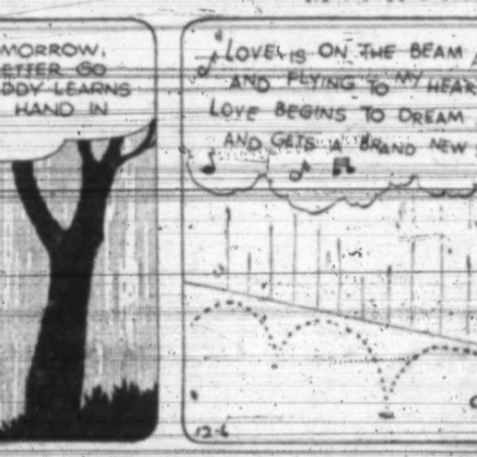 MORROW,
ETTER GO
DDY LEARNS
HAND IN
LOVE IS ON THE BEAM
AND FLYING TO MY HEAR
LOVE BEGINS TO DREAM
AND GETS A BRAND NEW
12-6